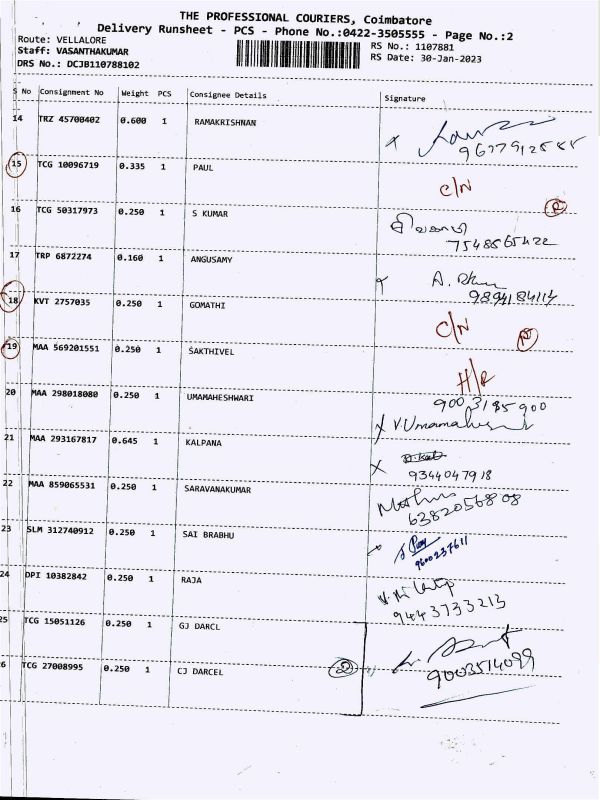 THE PROFESSIONAL COURIERS, Coimbatore
Delivery Runsheet - PCS - Phone No.:0422-3505555 - Page No.:2
Route: VELLALORE
RS No.: 1107881
Staff: VASANTHAKUMAR
RS Date: 30-Jan-2023
DRS No.: DCJB110788102
S No Consignment No Weight PCS Consignee Details Signature
14 TRZ 45700402 0.600 1 RAMAKRISHNAN
15 TCG 10096719 0.335 1 PAUL C/N R
16 TCG 50317973 0.250 1 S KUMAR
17 TRP 6872274 0.160 1 ANGUSAMY
9894184114
18 KVT 2757035 0.250 1 GOMATHI C/N
19 MAA 569201551 0.250 1 SAKTHIVEL
20 MAA 298018080 0.250 1 UMAMAHESHWARI
9003185900
V. Umamahes
21 MAA 293167817 0.645 1 KALPANA
9344047918
22 MAA 859065531 0.250 1 SARAVANAKUMAR
6382056808
23 SLM 312740912 0.250 1 SAI BRABHU
9600237611
24 DPI 10382842 0.250 1 RAJA
9443733213
25 TCG 15051126 0.250 1 GJ DARCL
26 TCG 27008995 0.250 1 CJ DARCEL
9003514099